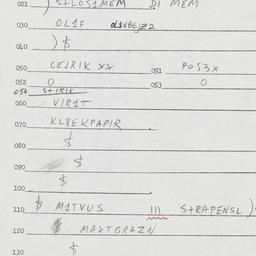 021 ) S+LOS1MEM DI MEM
030 OL1F
040 ) $
050 CEJRIK XX 051 PO53X
052 O 053 O
054 S+IRIK
060 VIR1T
070 KL8EKPAPIR
080 $
090 $
100 $
110 $ M1TVUS 111 S+RAPENSL )
120 MAXTGRAZN
130 $